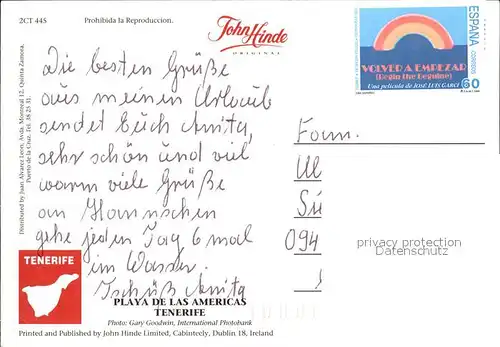 2CT 445 Prohibida la Reproduccion.
John Hinde
ORIGINAL
Die besten Grüße
aus meinem Urlaub
sendet Euch Anita,
sehr schön und viel
warm viele Grüße
an Hannschen
gehe jeden Tag 6 mal
im Wasser.
Tschüß Anita
Distributed by Juan Alvarez Leon, Avda. Montreal 12, Quinta Zamora,
Puerto de la Cruz. Tel. 38.25.31.
TENERIFE
PLAYA DE LAS AMERICAS
TENERIFE
Photo: Gary Goodwin, International Photobank
Printed and Published by John Hinde Limited, Cabinteely, Dublin 18, Ireland
ESPAÑA
CORREOS
VOLVER A EMPEZAR
(Begin the Beguine)
Una película de JOSÉ LUIS GARCI
60
Fam.
094
privacy protection
Datenschutz